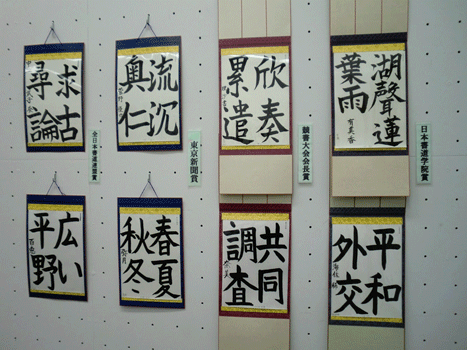 日本書道学院賞
湖聲蓮
葉雨
有美香
競書大会会長賞
欣奏
累遣
東京新聞賞
流沉
奥仁
全日本書道連盟賞
求古
尋論
平和
外交
共同
調査
春夏
秋冬
広い
平野